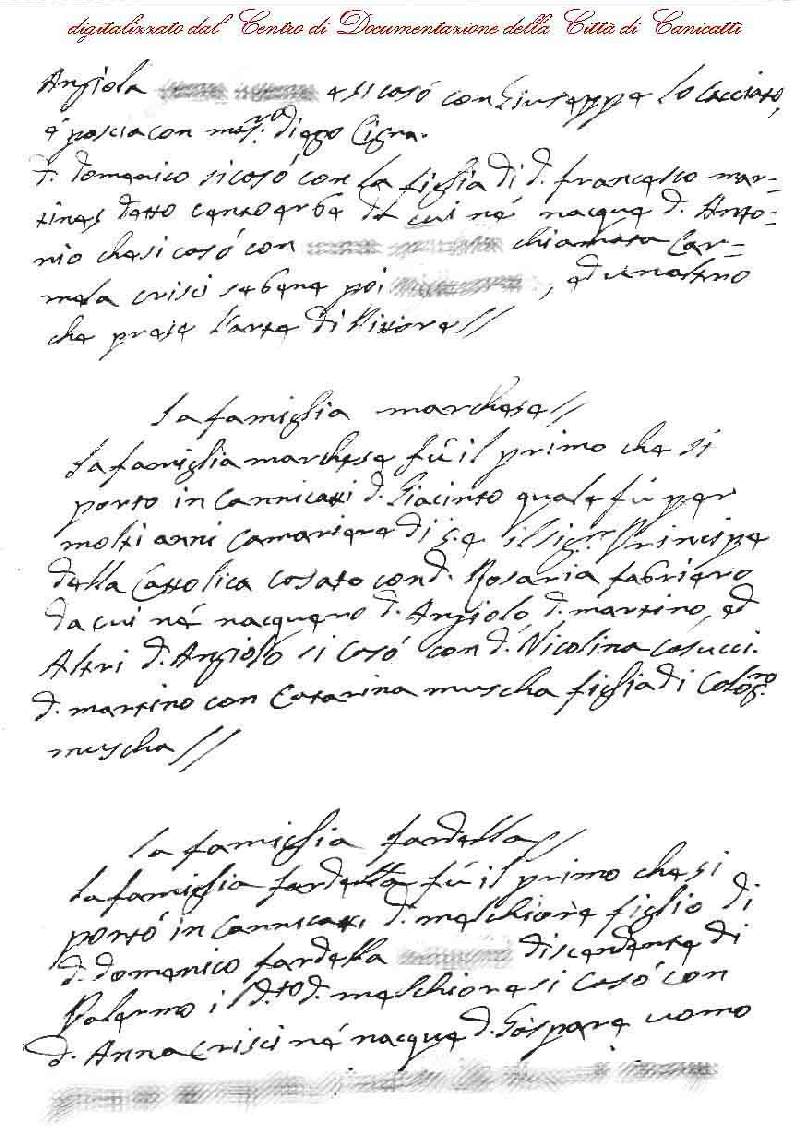 digitalizzato dal Centro di Documentazione della Città di Canicattì
Angiola e si casó con Giuseppe lo Cacciato,
é poscia con diego Cigna.
D. domenico si casó con la figlia di d. francesco mar=
tines detto centoerbe da cui né nacque d. Anto=
nio che si casó con chiamata Car=
mela crisci sebene poi , ed
che prese l'arte di Pittore//
La famiglia marchese//
La famiglia marchese fú il primo che si
porto in Cannicatti d. Giacinto quale fú per
molti anni Camariere di S.E. il Sig.r Principe
della Cattolica casato con d. Rosaria fabriero
da cui né nacquero d. Angiolo, d. martino, ed
Altri d. Angiolo si casó con d. Nicolina Casucci.
d. martino con Catarina muscha figlia di
muscha//
La famiglia fardella//
La famiglia fardella fú il primo che si
portó in Cannicatti d. melchiore figlio di
d. domenico fardella discendente di
Palermo il d.to d. melchiore si casó con
d. Anna Crisci né nacque d. Gaspare uomo